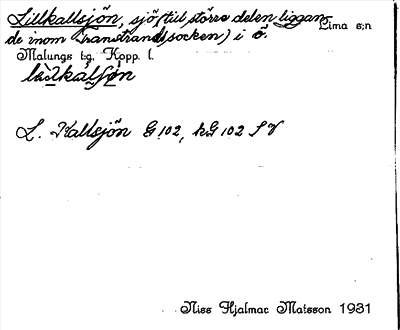 Lillkallsjön, sjö (till större delen liggan-
de inom Transtrands socken) i ö. Lima s:n
Malungs tg. Kopp. l.
L. Kallsjön G 102, hG 102 SV
Niss Hjalmar Matsson 1931